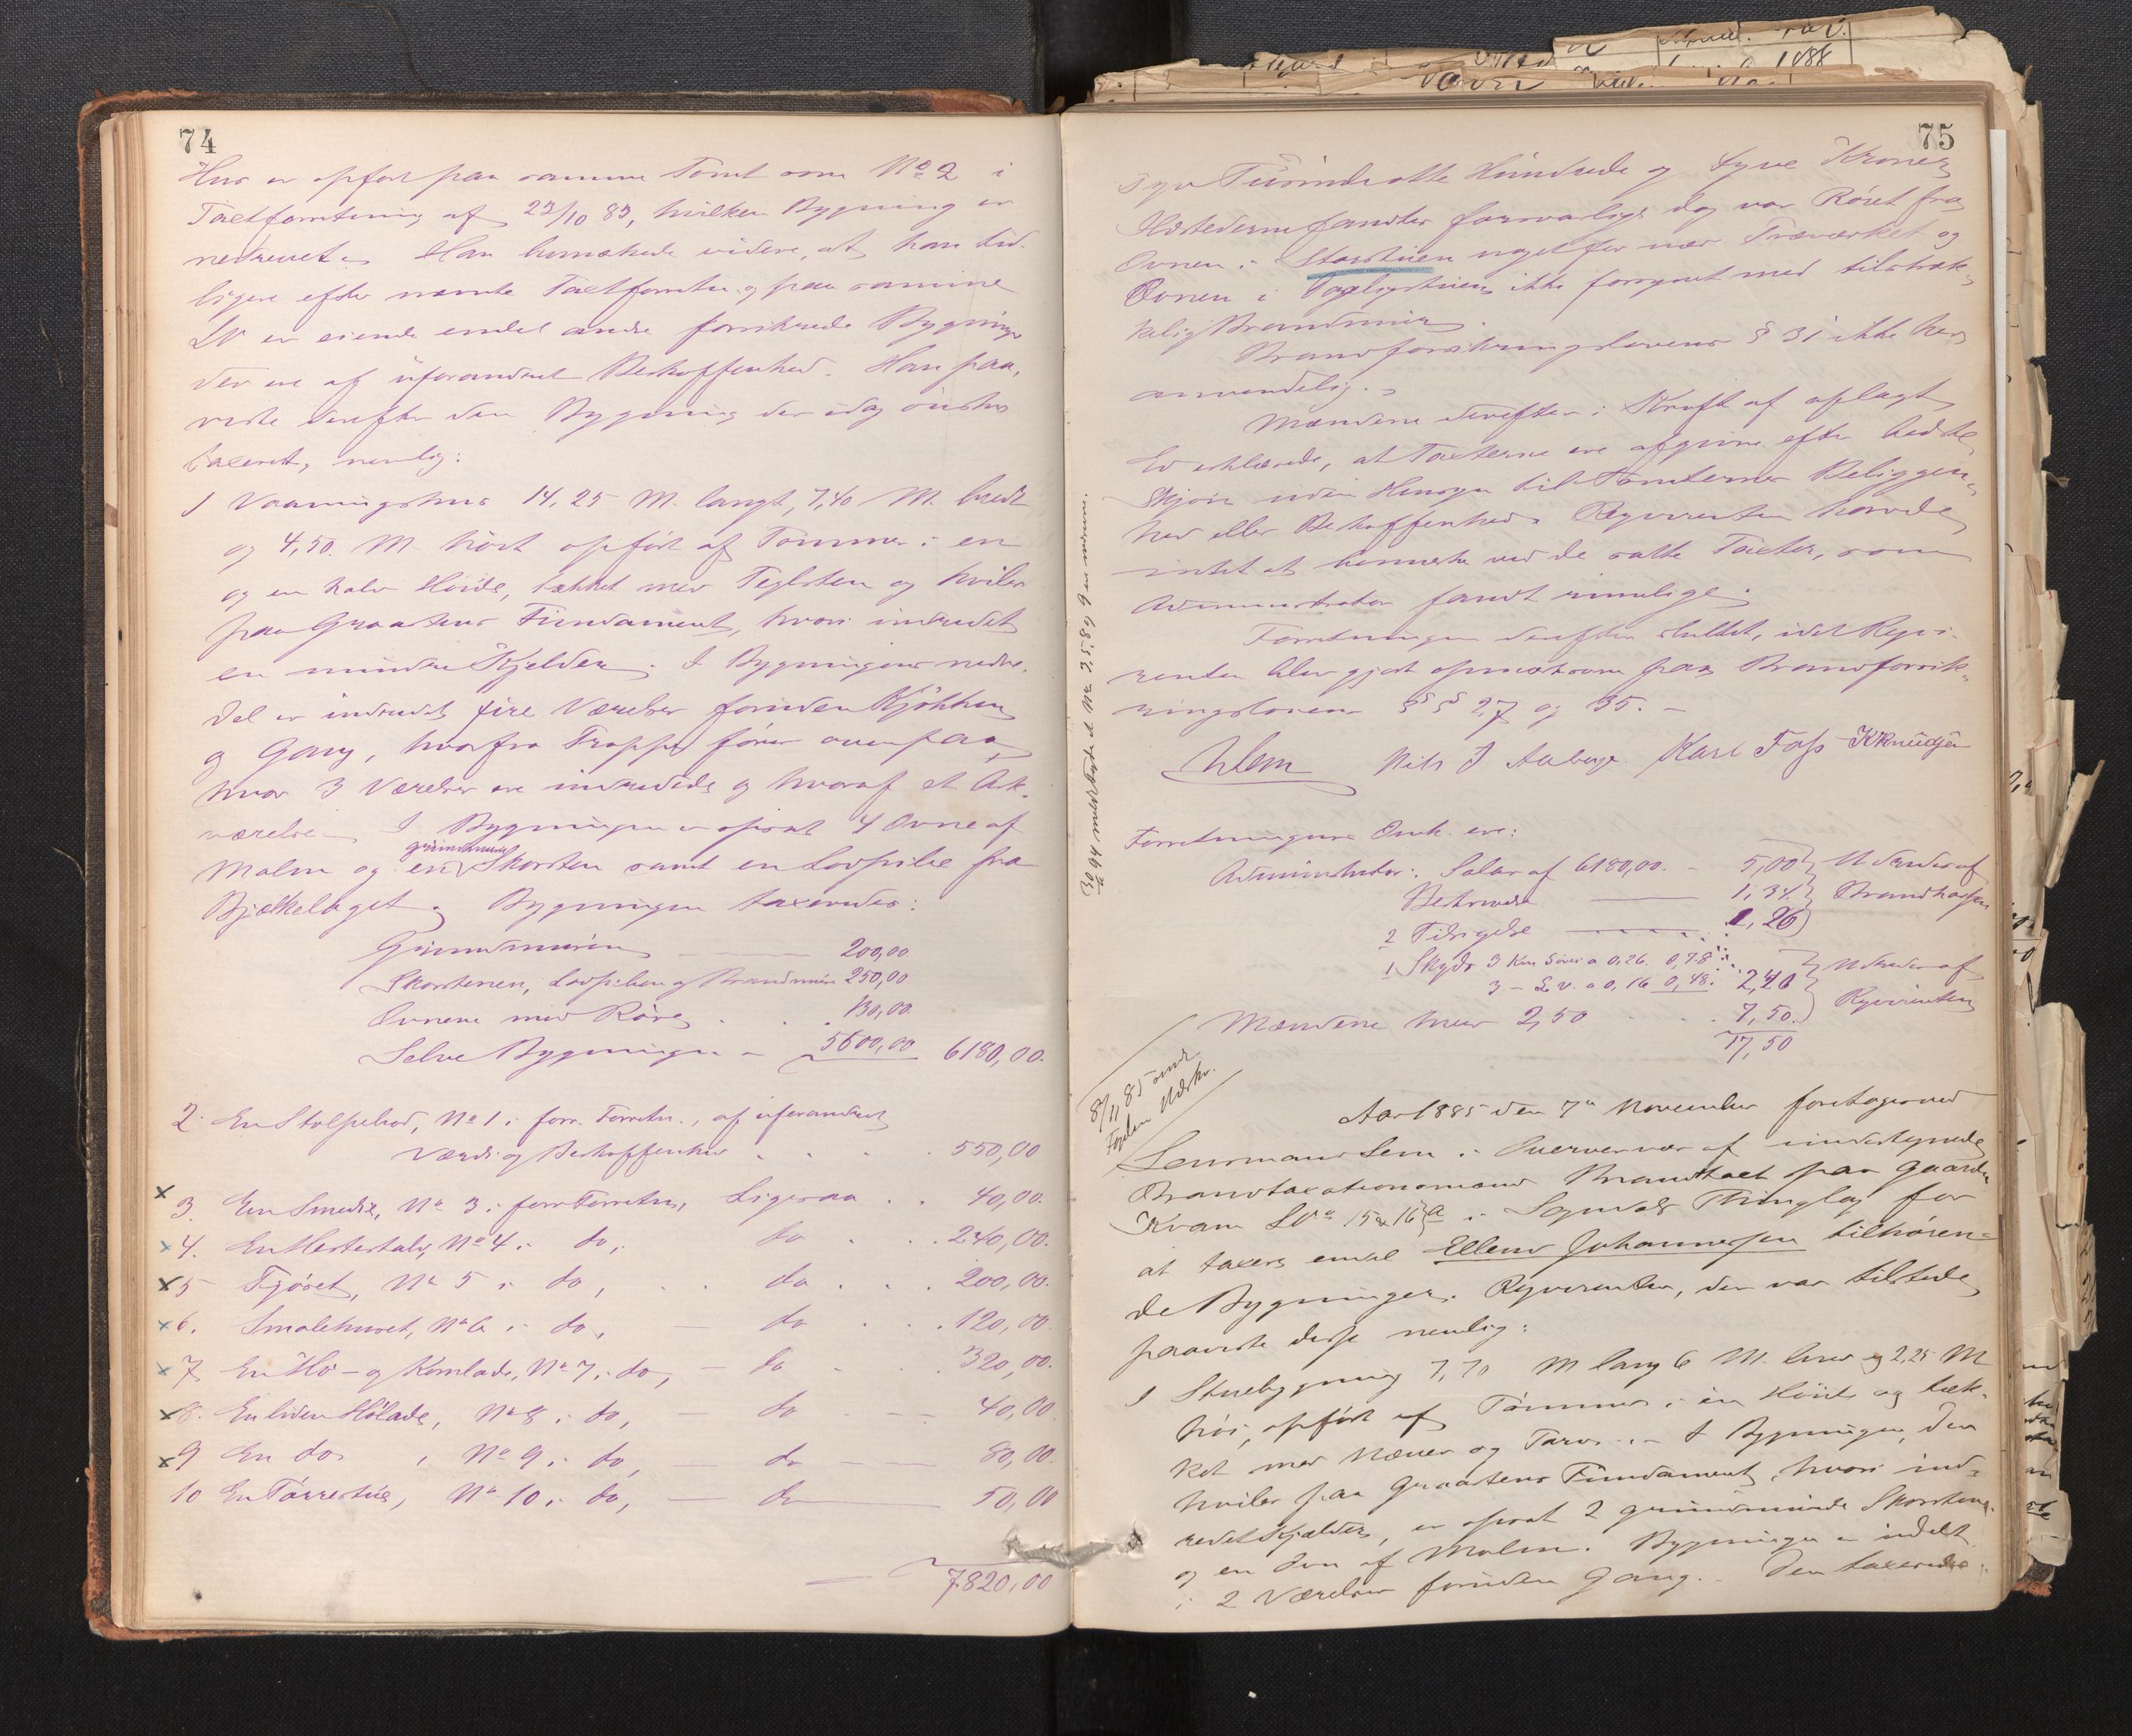 74
Hus er opført paa samme Tomt som No 2 i
Taxtforretning af 23/10 83, hvilken Bygning er
nedrevet. Han bemærkede videre, at han tid-
ligere efter nævnte Taxtforretn. og paa samme
LN er eiende endel andre forsikrede Bygninger
der ere af uforandret Beskaffenhed. Han paa-
viste derefter den Bygning der idag ønskes
taxeret, nemlig:
1 Vaaningshus 14,25 M. langt, 7,40 M. bredt
og 4,50 M. høit opført af Tømmer i en
og en halv Høide, tækket med Teglsten og hviler
paa Graastens Fundament, hvori indredet
en mindre Kjelder. I Bygningens nedre
Del er indredet fire Værelser foruden Kjøkken
og Gang, hvorfra Trappe fører ovenpaa,
hvor 3 Værelser ere indredede og hvoraf et Ark-
værelse. I Bygningen er opsat 4 Ovne af
grundmuret
Malm og en Skorsten samt en Lovpibe fra
Bjelkelaget. Bygningen taxeredes:
Grundmuren 200,00
Skorstenen, Lovpiben og Brandmuren 250,00
Ovnene med Rør 130,00
Selve Bygningen 5600,00 6180,00.
2. En Stolpebod, No 1 i forr. Forretn., af uforandret
Værdi og Beskaffenhed 550,00
x 3. En Smedie, No 3 i forr Forretn, Ligesaa 40,00.
x 4. En Hestestald, No 4 i do, do 240,00.
x 5 Fjøset, No 5 i do, do 200,00.
x 6. Smalehuset, No 6 i do, do 120,00.
x 7 En Hø- og Kornlade, No 7 i do, do 320,00.
x 8. En liden Hølade, No 8 i do, do 40,00
x 9 En do, No 9 i do, do 80,00.
10 En Tørrestue, No 10 i do, do 50,00
7820,00
75
Syv Tusinde otte Hundrede og Tyve Kroner
Ildstederne fandtes forsvarlige dog var Røret fra
Ovnen i Storstuen noget for nær Træværket og
Ovnen i Dagligstuen ikke forsynet med tilstræk-
kelig Brandmur.
Brandforsikringslovens § 31 ikke her
anvendelig.
Mændene derefter i Kraft af aflagt
Ed erklærede, at Taxterne ere afgivne efter bedste
Skjøn uden Hensyn til Tomternes Beliggen-
hed eller Beskaffenhed. Reqvirenten havde
intet at bemærke ved de satte Taxter, som
Administrator fandt rimelige.
Forretningen derefter sluttet, idet Reqvi-
renten blev gjort opmærksom paa Brandforsik-
ringslovens §§ 27 og 35.
Lem Nils J Aaberge Karl Foss K Knudsen
Forretningens Omk. ere:
Administrator: Salær af 6180,00. 5,00 } Udredes af
Beskrivelse 1,34 } Brandkassen
2 Tilsigelse 1,26 }
1 Skyds 3 Km Søvei a 0,26 0,78
3 - L.V. a 0,16 0,48 2,46 } Udredes af
Mændene hver 2,50 7,50 } Reqvirenten
17,50
8/11 85 sendt
Fogden Udskr.
Aar 1885 den 7de November foretoges ved
Lensmand Lem i Overvær af undertegnede
Brandtaxationsmænd Brandtaxt paa Gaarden
Kvam LNo 15 & 16 a i Sogndals Thinglag for
at taxere endel Ellend Johannessen tilhøren-
de Bygninger. Reqvirenten, der var tilstede
paaviste disse nemlig:
1 Stuebygning 7,70 M lang 6 M. bred og 2,25 M
høi, opført af Tømmer i en Høide og tæk-
ket med Næver og Torv. I Bygningen, der
hviler paa Graastens Fundament, hvori ind-
redet Kjelder, er opsat 2 grundmurede Skorstene
og en Ovn af Malm. Bygningen er indelt
i 2 Værelser foruden Gang. Den taxeredes: